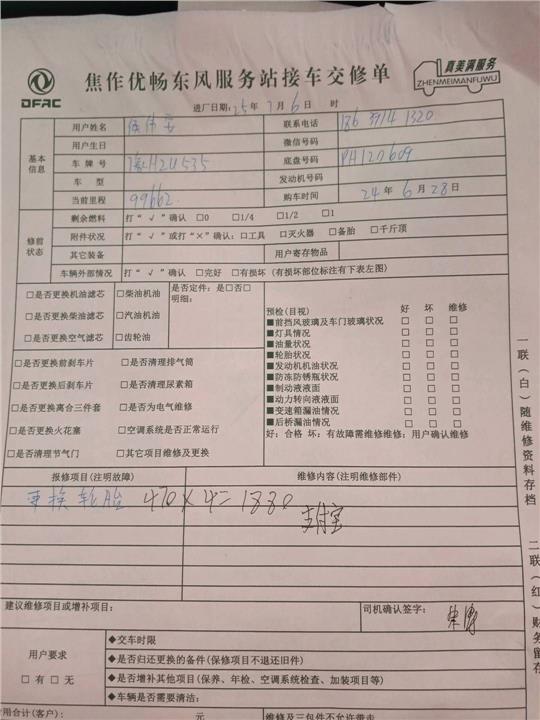 DFAC
焦作优畅东风服务站接车交修单
真美满服务
ZHENMEIMANFUWU
进厂日期: 25年 7月 6日 时
用户姓名 联系电话 186 3914 1320
基本信息
用户生日 微信号码
车牌号 豫H24535 底盘号码 PH120609
车型 发动机号码
当前里程 99662 购车时间 24年 6月 28日
修前状态
剩余燃料 打“√”确认 □0 □1/4 □1/2 □1
附件状况 打“√”或打“×”确认: □工具 □灭火器 □备胎 □千斤顶
其它装备 用户寄存物品
车辆外部情况 打“√”确认 □完好 □有损坏 (有损坏部位标注有下表左图)
□是否更换机油滤芯 □柴油机油 是否定件: 是□否□
明细:
□是否更换柴油滤芯 □汽油机油
□是否更换空气滤芯 □齿轮油
预检(目视) 好 坏 维修
■前挡风玻璃及车门玻璃状况 □ □ □
■灯具情况 □ □ □
■油量状况 □ □ □
■轮胎状况 □ □ □
■发动机机油状况 □ □ □
■防冻防锈瓶状况 □ □ □
■制动液液面 □ □ □
■动力转向液液面 □ □ □
■变速箱漏油情况 □ □ □
■后桥漏油情况 □ □ □
好: 合格 坏: 有故障需维修维修: 用户确认维修
□是否更换前刹车片 □是否清理排气筒
□是否更换后刹车片 □是否清理尿素箱
□是否更换离合三件套 □是否为电气维修
□是否更换火花塞 □空调系统是否正常运行
□是否清理节气门 □其它项目维修及更换
报修项目(注明故障) 维修内容(注明维修部件)
更换轮胎 470×4=1880
支付宝
建议维修项目或增补项目: 司机确认签字:
用户要求
□有 □无
◆交车时限
◆是否归还更换的备件(保修项目不退还旧件)
◆是否增补其他项目(保养、年检、空调系统检查、加装项目等)
◆车辆是否需要清洁:
用合计(客户): 元 维修及三包件不允许带走
一联(白)随维修资料存档
二联(红)财务留存